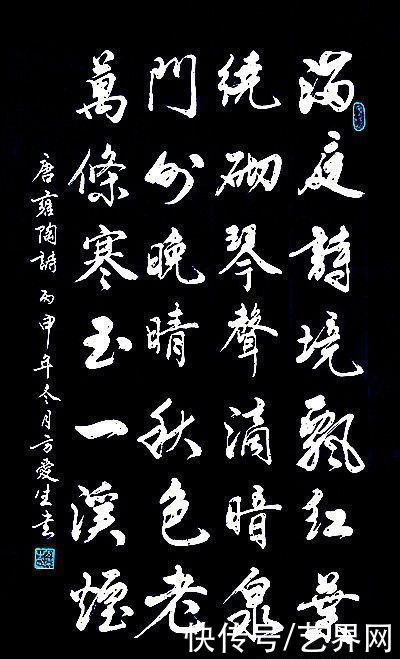 滿庭詩境飄紅葉
繞砌琴聲滴暗泉
門外晚晴秋色老
萬條寒玉一溪煙
唐雍陶詩 丙申年冬月方愛生書
快传号/艺界网